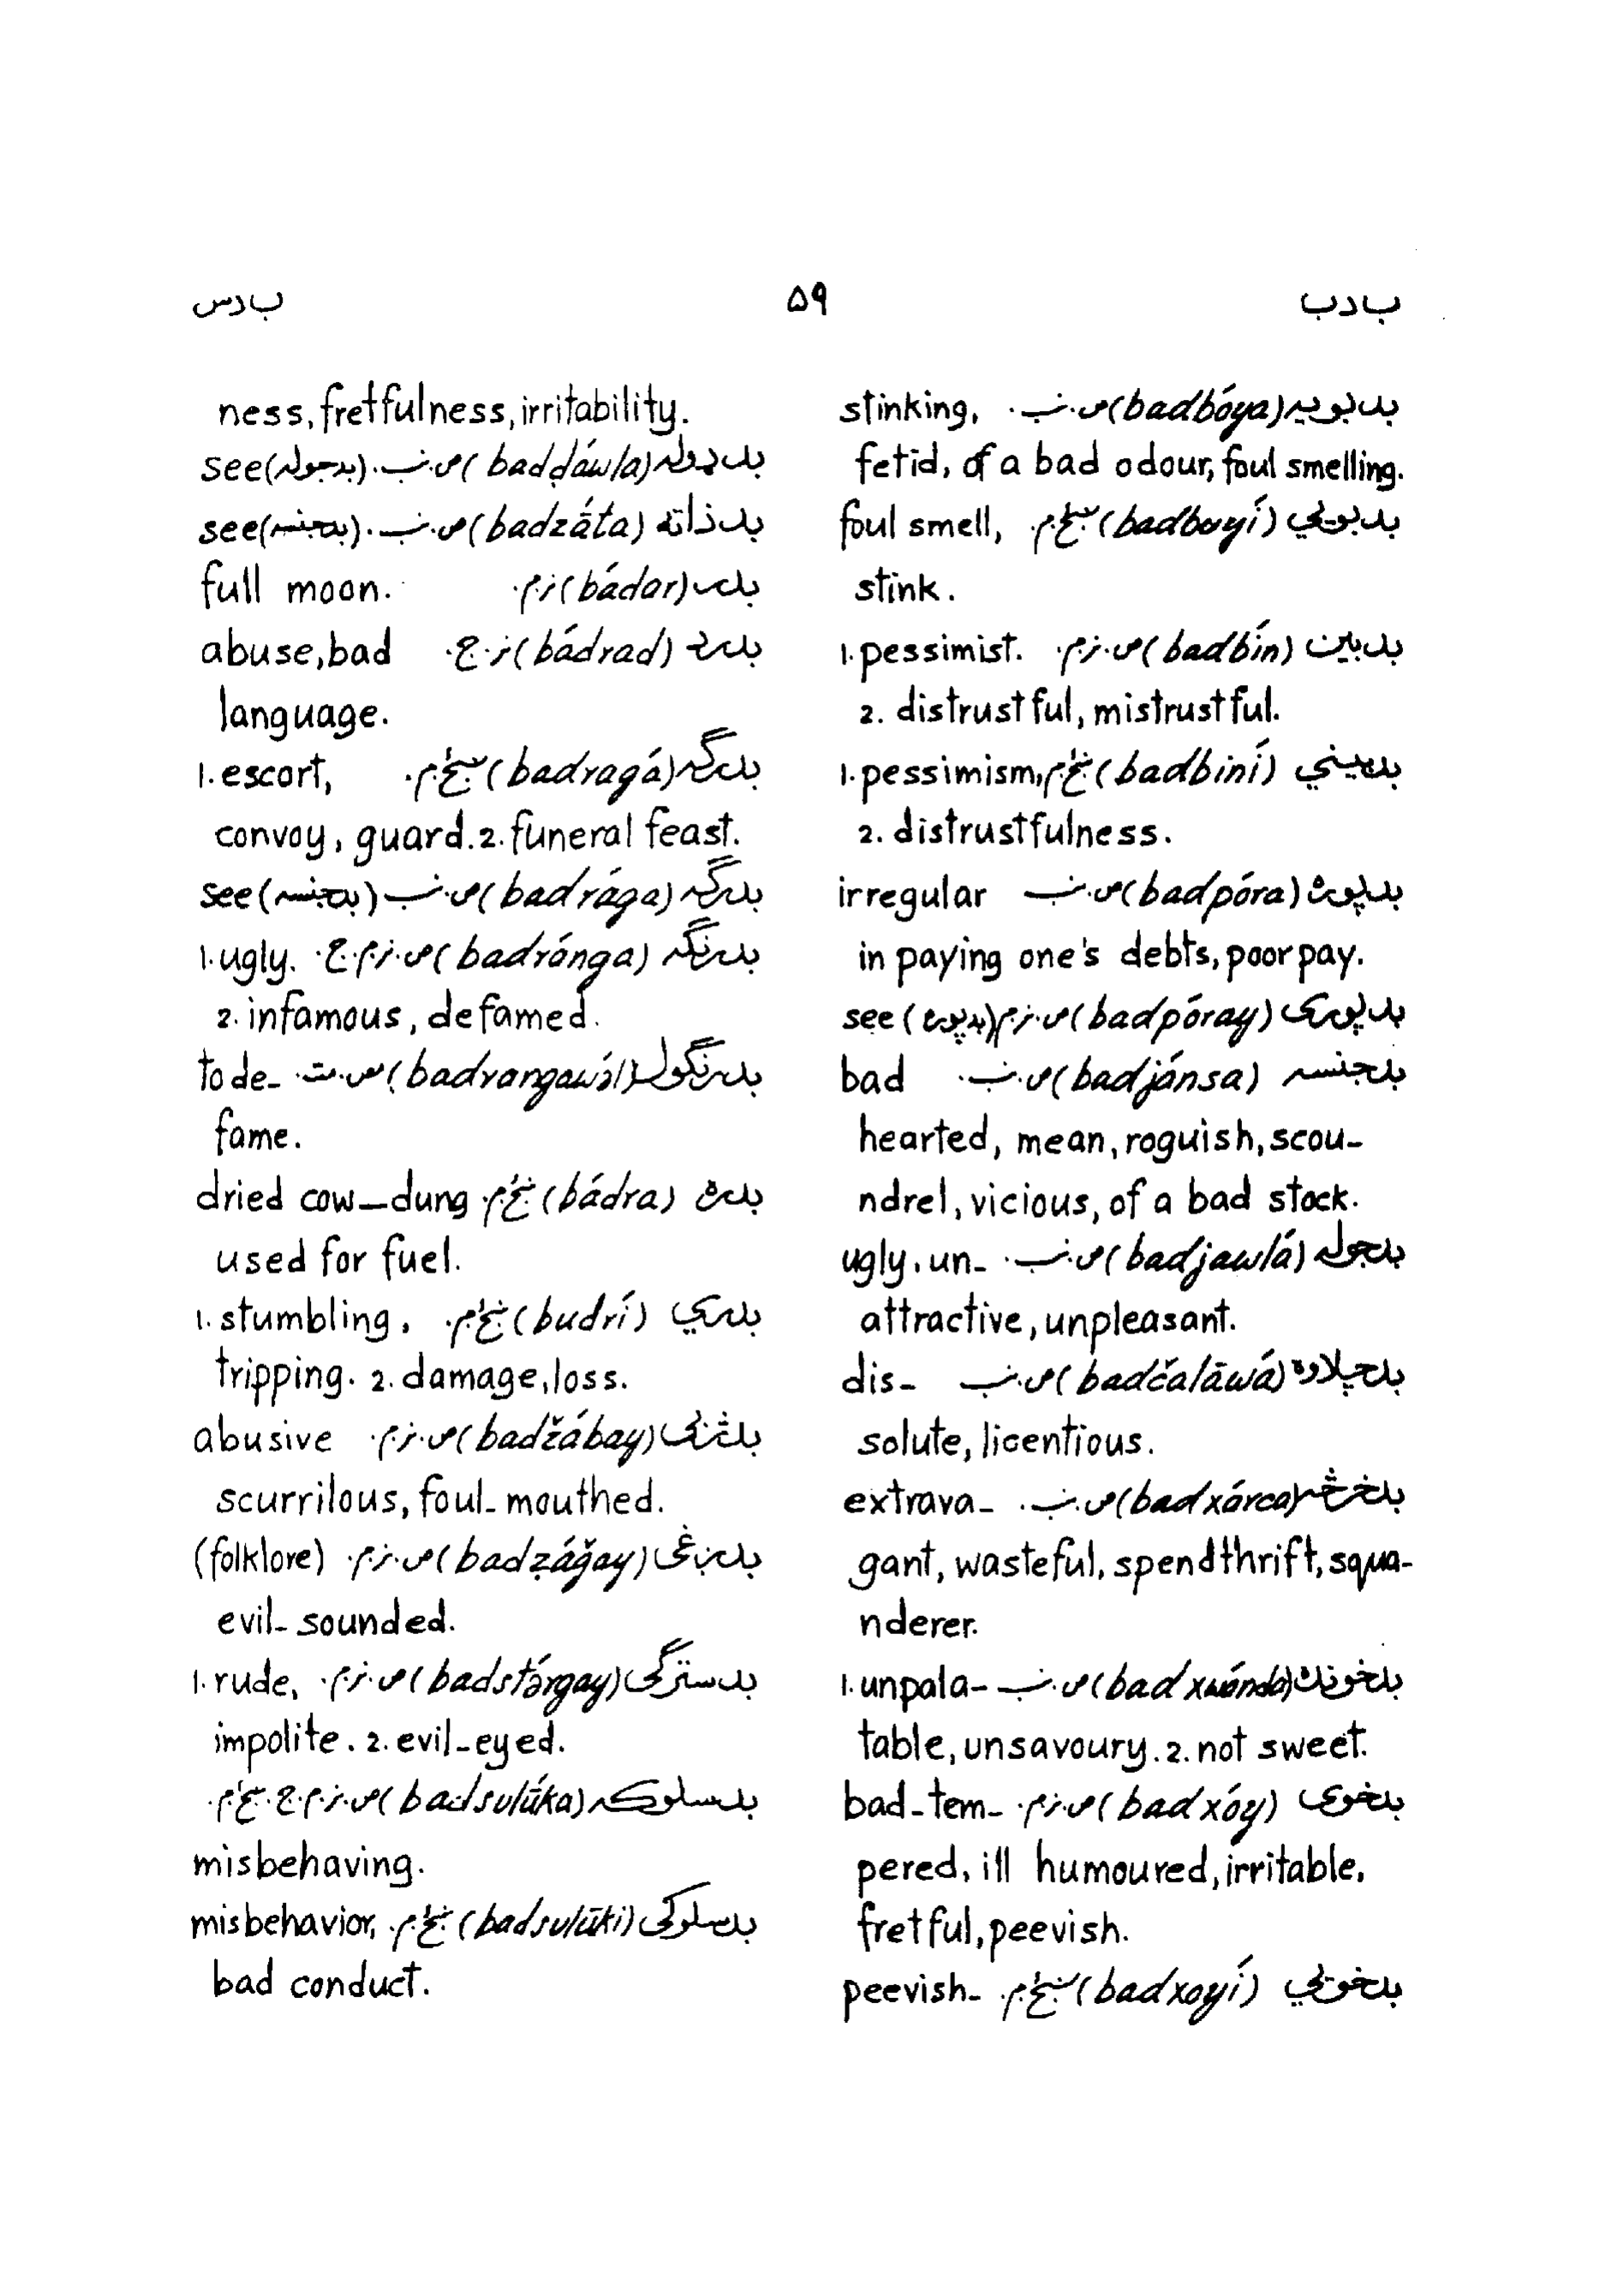 ب د ب
۵۹
ب د س
بدبویه (badbóya) ص.ن.ب. stinking,
fetid, of a bad odour, foul smelling.
بدبويي (badboyí) foul smell,
stink.
بدبین (badbín) ص.ن.م. 1. pessimist.
2. distrustful, mistrustful.
بدبیني (badbiní) 1. pessimism,
2. distrustfulness.
بدپوره (badpóra) ص.ن.ب irregular
in paying one's debts, poor pay.
بدپوری (badpóray) ص.ن.م (بدپوره) see
بدجنسه (badjánsa) ص.ن.ب. bad
hearted, mean, roguish, scou-
ndrel, vicious, of a bad stock.
بدجوله (badjawlá) ص.ن.ب. ugly, un-
attractive, unpleasant.
بدچلاوه (badčalāwá) ص.ن.ب dis-
solute, licentious.
بدخرڅه (badxárca) ص.ن.ب. extrava-
gant, wasteful, spendthrift, squa-
nderer.
بدخونده (badxwánda) ص.ن.ب 1. unpala-
table, unsavoury. 2. not sweet.
بدخوی (badxóy) ص.ن.م. bad-tem-
pered, ill humoured, irritable,
fretful, peevish.
بدخويي (badxoyí) peevish-
ness, fretfulness, irritability.
بدډوله (badḍáwla) ص.ن.ب. (بدجوله) see
بدذاته (badzāta) ص.ن.ب. (بدجنسه) see
بدر (bádar) ن.م. full moon.
بدرد (bádrad) ن.ج. abuse, bad
language.
بدرگه (badragá) 1. escort,
convoy, guard. 2. funeral feast.
بدرگه (badrága) ص.ن.ب (بدجنسه) see
بدرنګه (badránga) ص.ن.م.ج. 1. ugly.
2. infamous, defamed.
بدرنګول (badrangawə́l) to de-
fame.
بدره (bádra) dried cow-dung
used for fuel.
بدري (budrí) 1. stumbling,
tripping. 2. damage, loss.
بدژبی (badžábay) ص.ن.م. abusive
scurrilous, foul-mouthed.
بدږغی (badẓáğay) ص.ن.م. (folklore)
evil-sounded.
بدسترگی (badstə́rgay) ص.ن.م. 1. rude,
impolite. 2. evil-eyed.
بدسلوکه (badsulūka) ص.ن.م.ج
misbehaving.
بدسلوکی (badsulūki) misbehavior,
bad conduct.